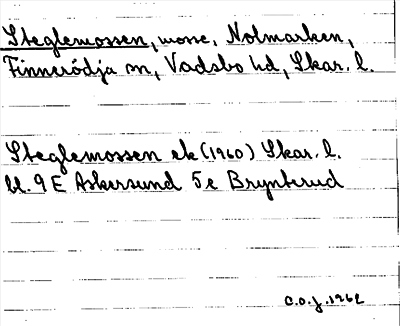 Steglemossen, mosse, Nolmarken,
Finnerödja sn, Vadsbo hd, Skar. l.
Steglemossen ek (1960) Skar. l.
bl. 9E Askersund 5e Brynterud
C.O.J. 1962